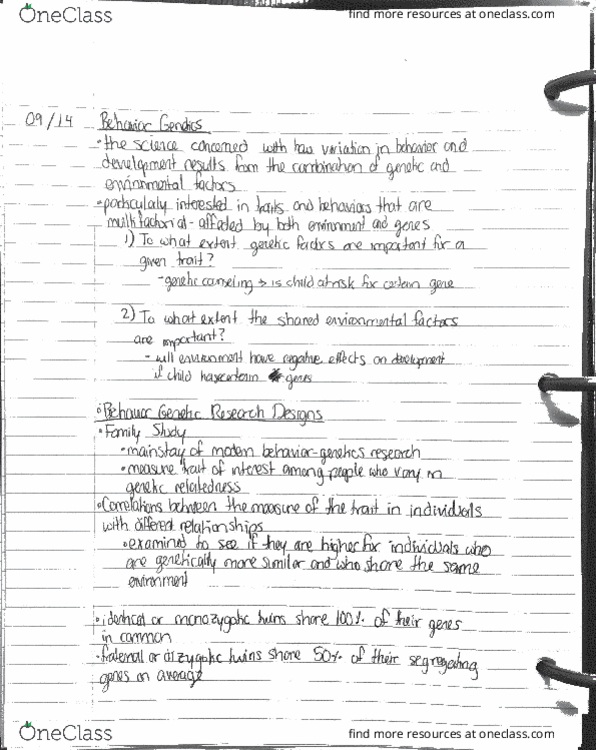 OneClass
find more resources at oneclass.com
09/14 Behavior Genetics
• the science concerned with how variation in behavior and
development results from the combination of genetic and
environmental factors
• particularly interested in traits and behaviors that are
multifactorial - affected by both environment and genes
1) To what extent genetic factors are important for a
given trait?
- genetic counseling → is child at risk for certain gene
2) To what extent the shared environmental factors
are important?
- will environment have negative effects on development
if child has certain genes
• Behavior Genetic Research Designs
• Family Study
• mainstay of modern behavior-genetics research
• measure trait of interest among people who vary in
genetic relatedness
• Correlations between the measure of the trait in individuals
with different relationships
• examined to see if they are higher for individuals who
are genetically more similar and who share the same
environment
• identical or monozygotic twins share 100% of their genes
in common
• fraternal or dizygotic twins share 50% of their segregating
genes on average
OneClass
find more resources at oneclass.com